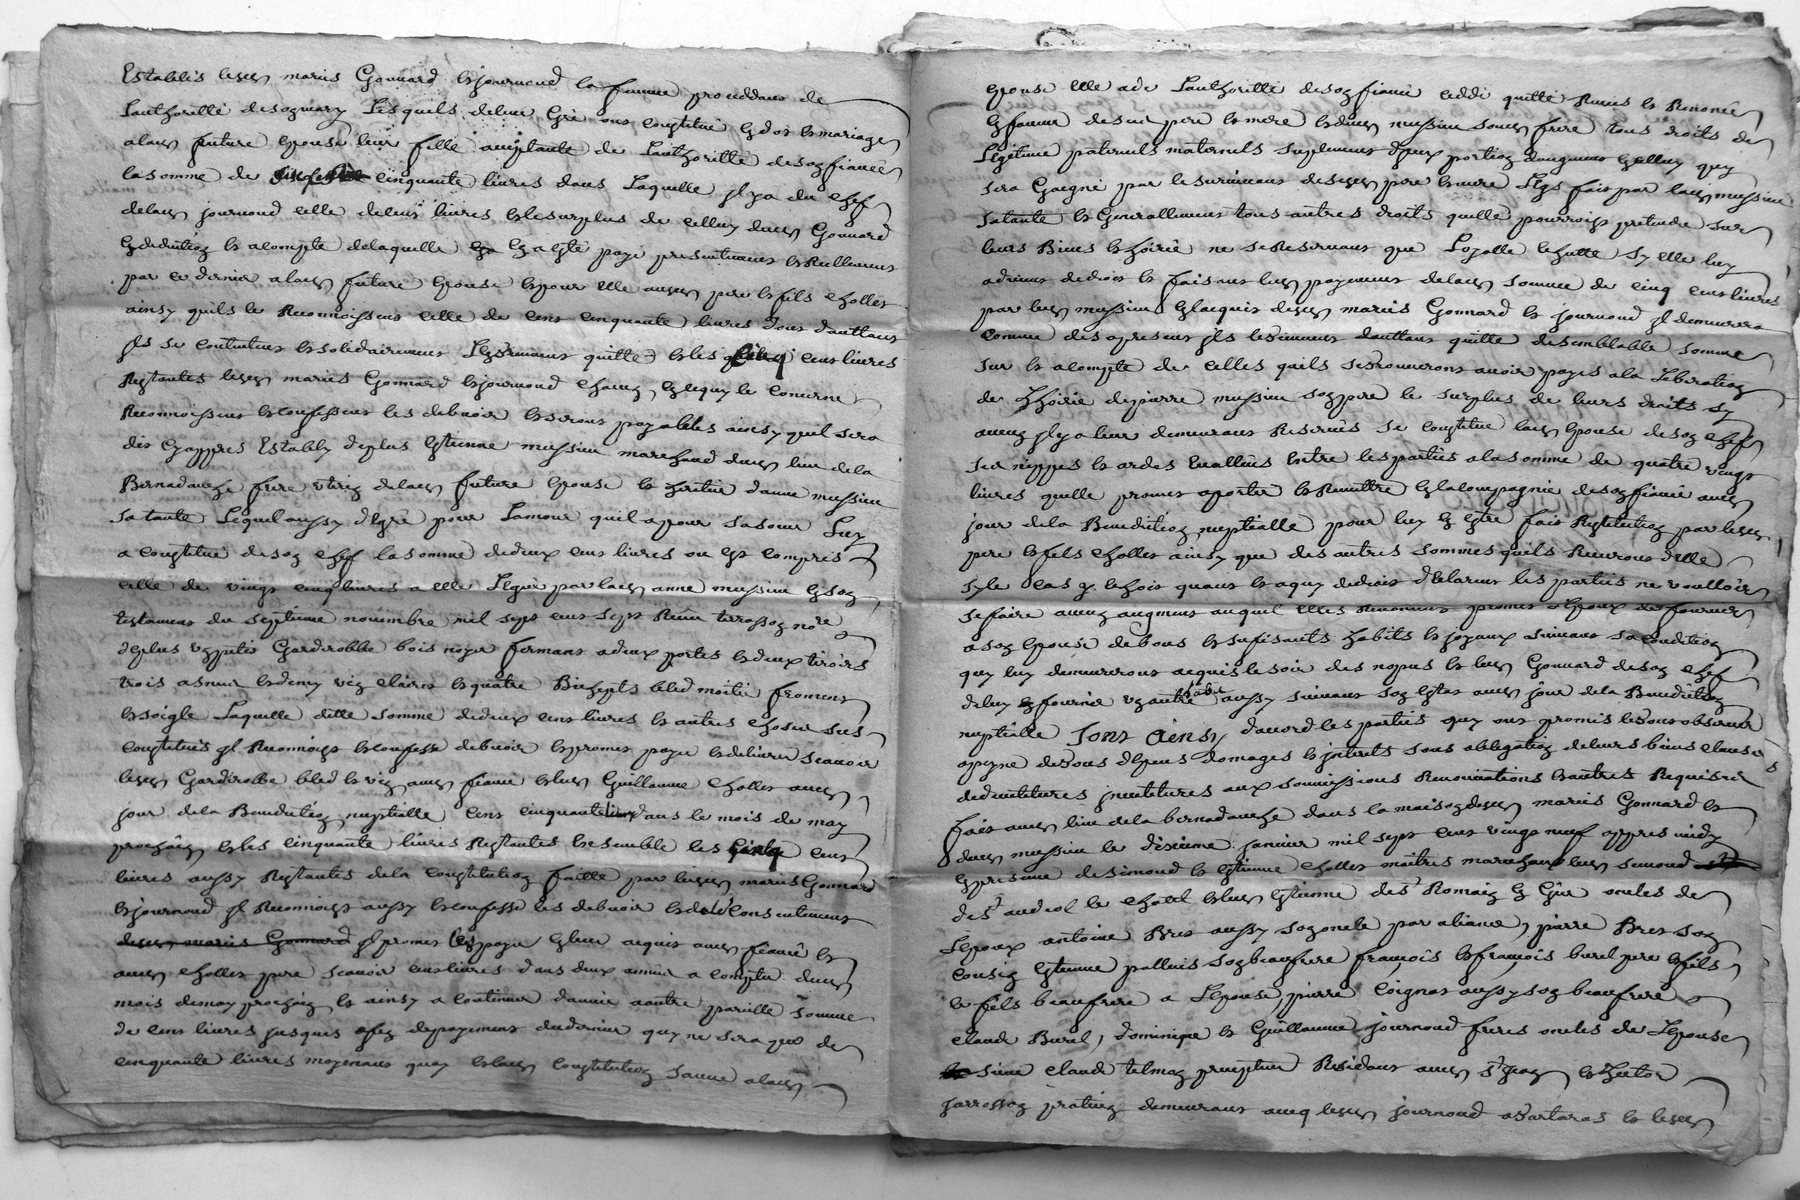 Establis lesd mariés Gonnard et journoud la femme proceddant de
Lauthoritté de son mary Lesquels de leur gré ont constitué en dot et mariage
a lad future epouse leur fille acceptante de Lauthoritté de son fiancé
la somme de cinquante livres dans Laquelle jl y a du chef
de lad journoud celle de livres et le surplus de celluy dud Gonnard
en deduction et acompte de laquelle en a esté payé presentement et Reellement
par ce dernier a lad future epouse et pour elle auxd pere et fils chollet
ainsy quils le Reconnoissent celle de cent cinquante livres dont d'auttant
jls se contentent et solidairement quitte et les cinq cent livres
Restantes lesd mariés Gonnard et journoud chacun en ce quy le concerne
Reconnoissent et confessent les debvoir et seront payables ainsy quil sera
dit cy appres Estably de plus estienne mussieu marchand dud lieu de la
Bernadanche frere uterin de lad future epouse et heritier d'anne mussieu
sa tante Lequel aussy de gré pour Lamour quil a pour sa soeur Luy
a constitué de son chef la somme de deux cent livres ou est compris
celle de vingt cinq livres a elle Leguée par lad anne mussieu en son
testament du septieme novembre mil sept cent sept Receu terrasson nore
de plus un petit Garderobbe bois noyer fermant a deux portes et deux tiroirs
trois asnées et demy vin clairet et quatre Bichets bled moitié froment
et soigle Laquelle ditte somme de deux cent livres et autres choses sus
constitués jl Reconnoist et confesse debvoir et promet payer et delivrer scavoir
lesd Garderobbe bled et vin aud fiancé et aud Guillaume chollet aud
jour de la Benediction nuptialle cent cinquante livres dans le mois de may
prochain et les cinquante livres Restantes et ensemble les cinq cent
livres aussy Restantes de la constitution faitte par lesd mariés Gonnard
et journoud jl Reconnoist aussy et confesse les debvoir et de leur consentement
desd mariés Gonnard jl promet les payer en leur acquit aud fiancé et
aud chollet pere scavoir cent livres dans deux années a compter dud
mois de may prochain et ainsy a continuer d'année a autre pareille somme
de cent livres jusques a fin de payement du dernier quy ne sera que de
cinquante livres moyenant quoy et lad constitution jcelle a lad
epouse elle a de Lauthoritté de son fiancé ceddé quitté Remis et Renoncé
en faveur de sesd pere et mere et dud mussieu soud frere tous droits de
Legitime paternels maternels suplement d'jceux portion d'augment en celluy quy
sera Gaigné par le survivant de sesd pere et mere Legs fait par lad mussieu
sa tante et Generallement tous autres droits quelle pourroist pretendre sur
leurs Biens et hoirie ne se Reservant que Loyalle echutte sy elle luy
advient de droit et faisant led payement de lad somme de cinq cent livres
par led mussieu en lacquit desd mariés Gonnard et journoud jl demeurera
comme des apresent jls le tiennent d'auttant quitte de semblable somme
sur et acompte de celles quils se trouveront avoir payés a la Liberation
de Lhoirie de pierre mussieu son pere le surplus de leurs droits sy
aucun jl y a leur demeurant Reservés se constitue lad epouse de son chef
ses nippes et ardes Evalluées entre les parties a la somme de quatre vingt
livres quelle promet aporter et Remettre en la compagnie de son fiancé aud
jour de la Benediction nuptialle pour luy en estre fait Restitution par lesd
pere et fils chollet ainsy que des autres sommes quils Recevront d'elle
sy le cas y echoit quant et a quy de droit declarent les parties ne voulloir
se faire aucun augment auquel elles Renoncent promet Lepoux de fournir
a son epouse de bons et suffisants habits et joyaux suivant sa condition
quy luy demeureront acquis le soir des nopces et led Gonnard de son chef
de luy en fournir un autre habit aussy suivant son estat aud jour de la Benediction
nuptialle Tont Ainsy d'acord les parties quy ont promis le tout observer
a peyne de tous depens domages et jnterets sous obligation de leurs biens clauses
de devetitures jnvetitures aux soumissions Renonciations et autres Requises
fait aud lieu de la bernadanche dans la maison desd mariés Gonnard et
dud mussieu le dixieme janvier mil sept cent vingt neuf appres midy
en presence de simond et Estienne chollet maitres marechaux led simond
de St andeol le chatel et led Estienne de St Romain en Gier oncles de
Lepoux antoine Bret aussy son oncle par aliance, pierre Bret son
cousin Estienne palluis son beaufrere françois et françois burel pere et fils
le fils beaufrere a Lepouse, pierre Coignet aussy son beaufrere
claude Burel, dominique et Guillaume journoud freres oncles de Lepouse
sieur claude telmon precepteur Residant aud St Jean et hector
jarrosson praticien demeurant avec lesd journoud a tartaras et lesd